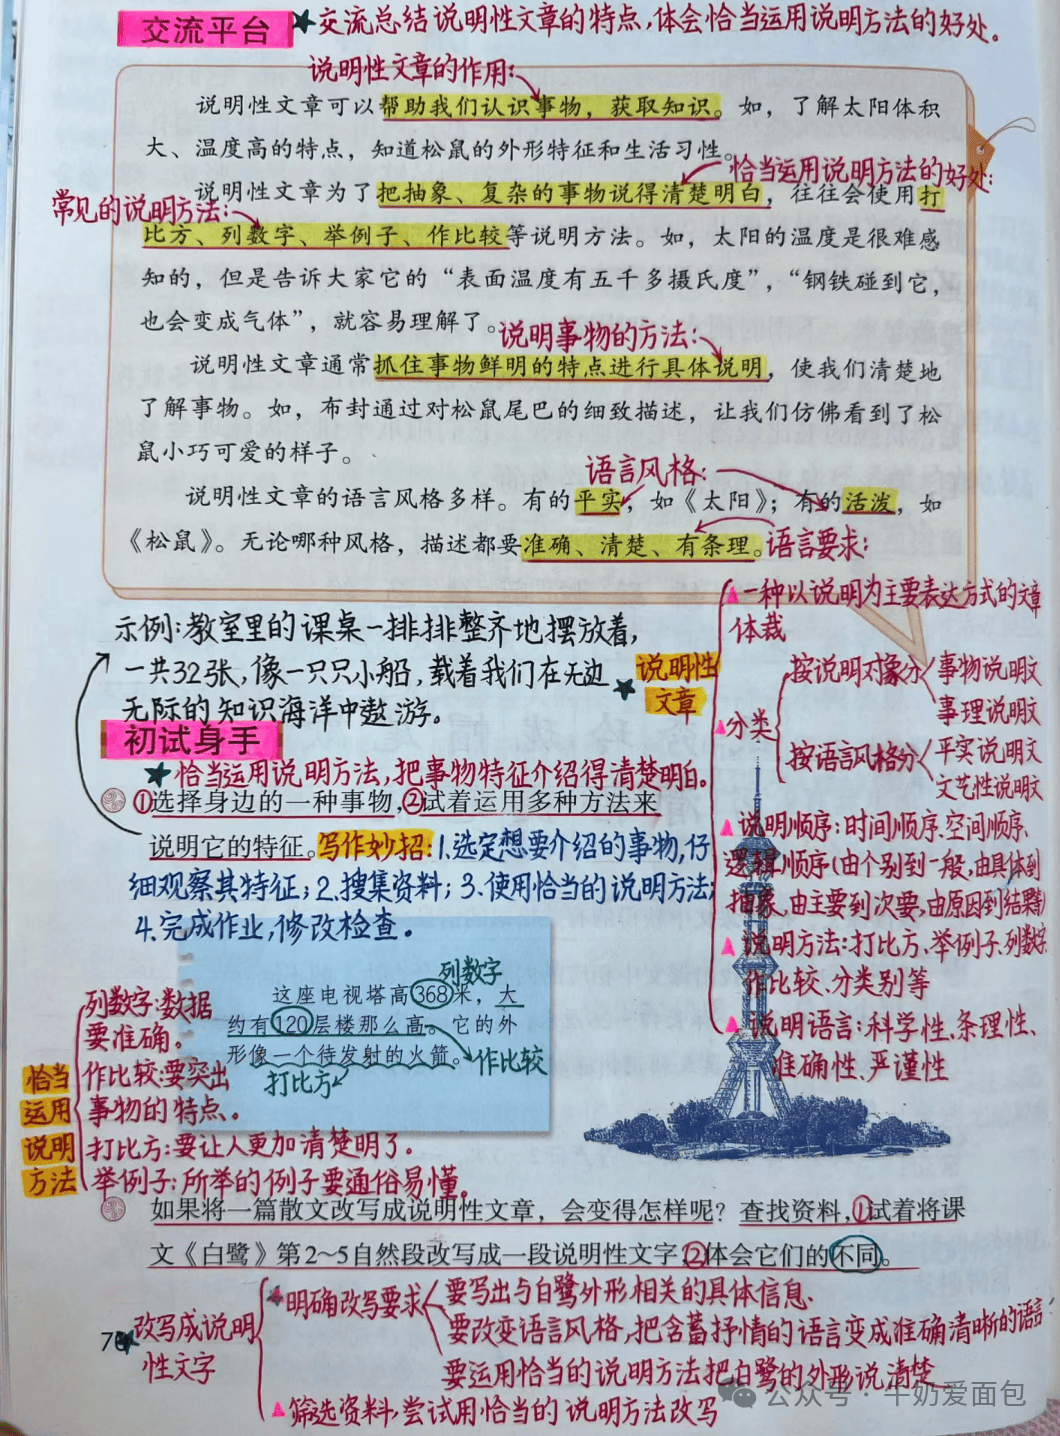 交流平台
★交流总结说明性文章的特点,体会恰当运用说明方法的好处。
说明性文章的作用:
说明性文章可以帮助我们认识事物，获取知识。如，了解太阳体积
大、温度高的特点，知道松鼠的外形特征和生活习性。
恰当运用说明方法的好处:
说明性文章为了把抽象、复杂的事物说得清楚明白，往往会使用打
常见的说明方法:
比方、列数字、举例子、作比较等说明方法。如，太阳的温度是很难感
知的，但是告诉大家它的“表面温度有五千多摄氏度”，“钢铁碰到它，
也会变成气体”，就容易理解了。
说明事物的方法:
说明性文章通常抓住事物鲜明的特点进行具体说明，使我们清楚地
了解事物。如，布封通过对松鼠尾巴的细致描述，让我们仿佛看到了松
鼠小巧可爱的样子。
语言风格:
说明性文章的语言风格多样。有的平实，如《太阳》；有的活泼，如
《松鼠》。无论哪种风格，描述都要准确、清楚、有条理。
语言要求:
示例:教室里的课桌一排排整齐地摆放着,
一共32张,像一只只小船,载着我们在无边
无际的知识海洋中遨游。
★说明性
文章
▲一种以说明为主要表达方式的文章
体裁
▲分类
按说明对象分
事物说明文
事理说明文
按语言风格分
平实说明文
文艺性说明文
▲说明顺序:时间顺序、空间顺序、
逻辑顺序(由个别到一般,由具体到
抽象,由主要到次要,由原因到结果)
▲说明方法:打比方、举例子、列数字、
作比较、分类别等
▲说明语言:科学性、条理性、
准确性、严谨性
初试身手
★恰当运用说明方法,把事物特征介绍得清楚明白。
①选择身边的一种事物，②试着运用多种方法来
说明它的特征。写作妙招:1.选定想要介绍的事物,仔
细观察其特征;2.搜集资料;3.使用恰当的说明方法;
4.完成作业,修改检查。
列数字
这座电视塔高368米，大
约有120层楼那么高。它的外
形像一个待发射的火箭。
作比较
打比方
恰当
运用
说明
方法
列数字:数据
要准确。
作比较:要突出
事物的特点。
打比方:要让人更加清楚明了。
举例子:所举的例子要通俗易懂。
如果将一篇散文改写成说明性文章，会变得怎样呢？查找资料，①试着将课
文《白鹭》第2~5自然段改写成一段说明性文字，②体会它们的不同。
★改写成说明
性文字
▲明确改写要求
要写出与白鹭外形相关的具体信息
要改变语言风格,把含蓄抒情的语言变成准确清晰的语言
要运用恰当的说明方法把白鹭的外形说清楚
▲筛选资料,尝试用恰当的说明方法改写
公众号·牛奶爱面包